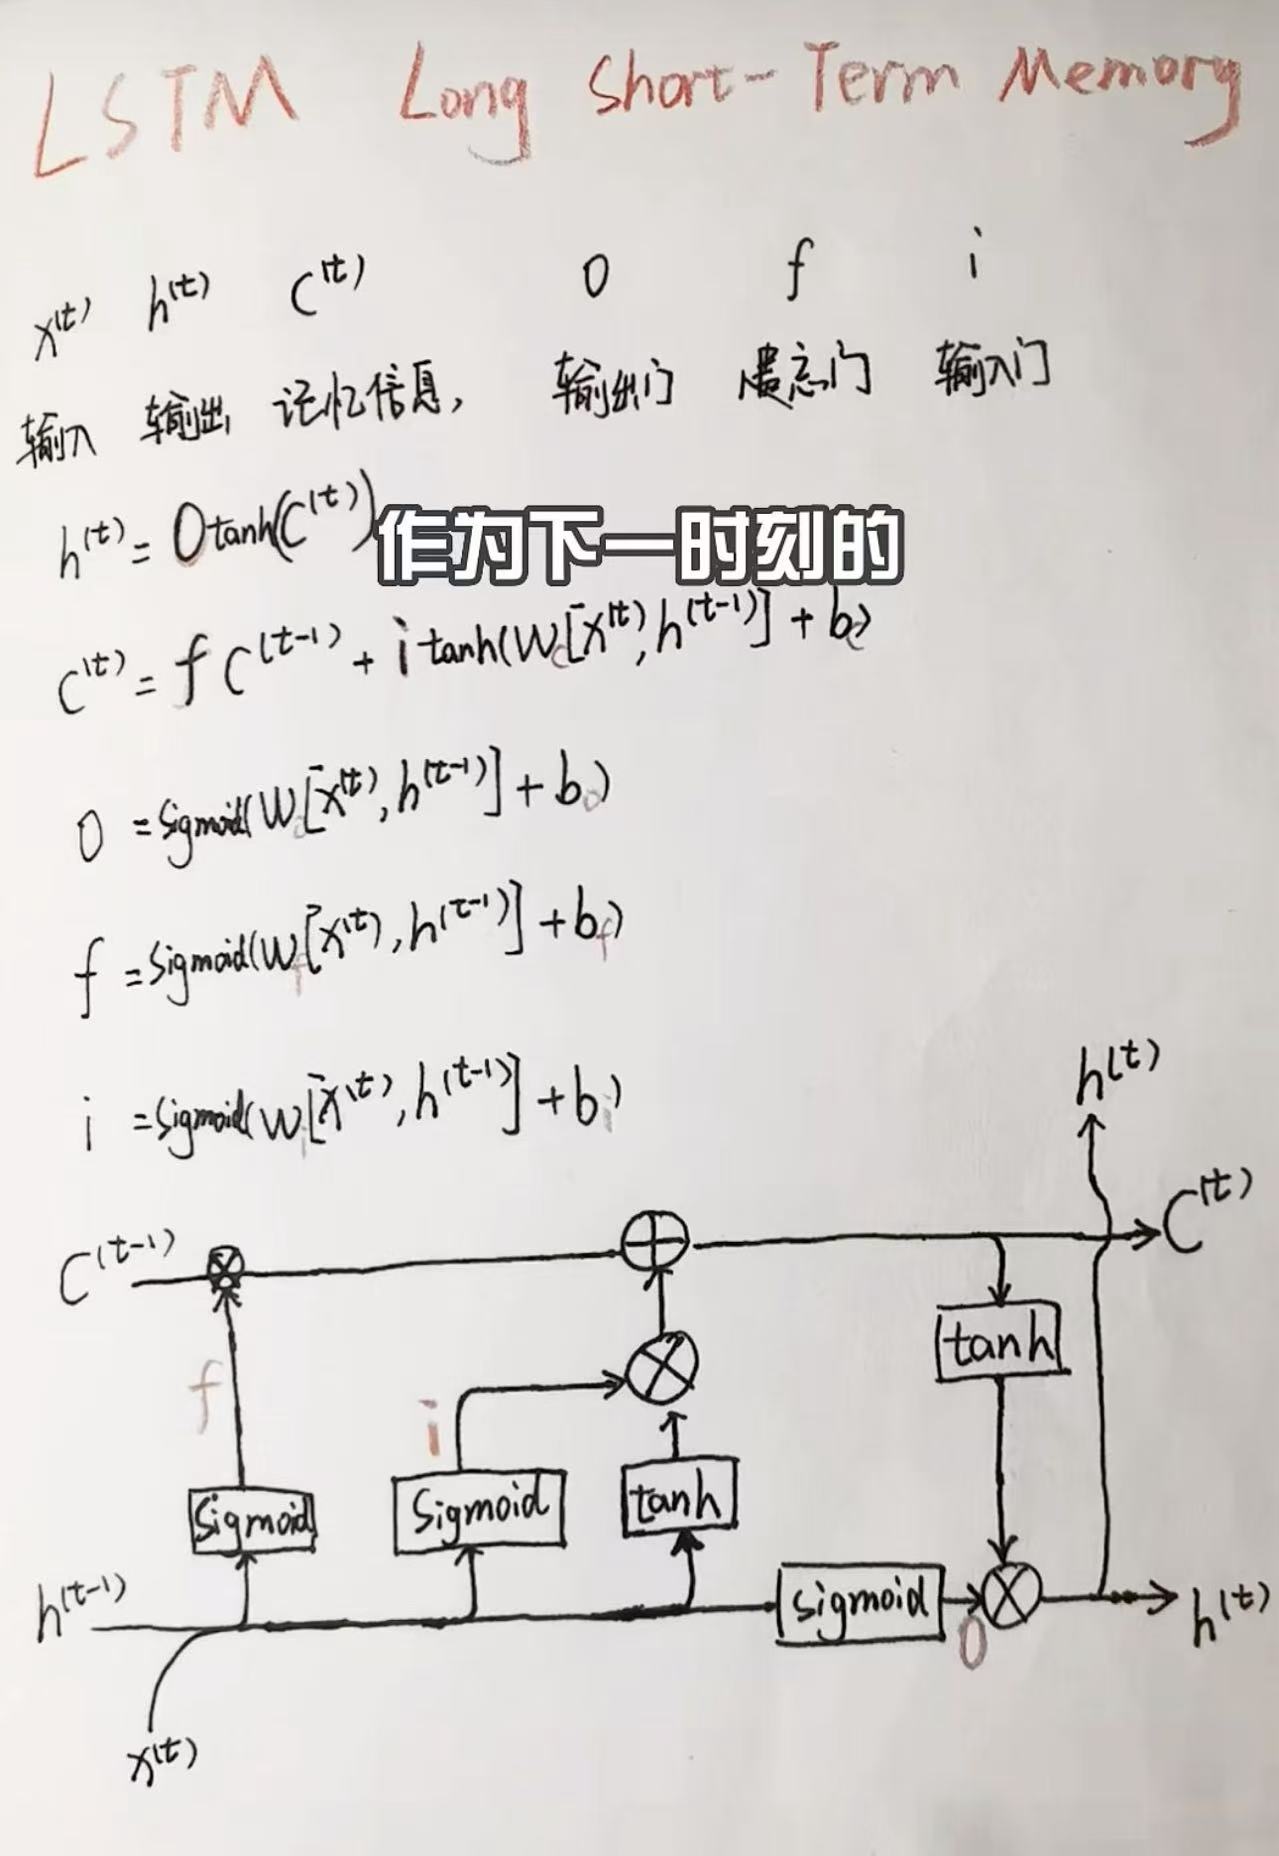 LSTM Long Short-Term Memory
x⁽ᵗ⁾ h⁽ᵗ⁾ C⁽ᵗ⁾ O f i
输入 输出 记忆信息, 输出门 遗忘门 输入门
h⁽ᵗ⁾ = O tanh(C⁽ᵗ⁾)
作为下一时刻的
C⁽ᵗ⁾ = f C⁽ᵗ⁻¹⁾ + i tanh(W_c[x⁽ᵗ⁾, h⁽ᵗ⁻¹⁾] + b_c)
O = Sigmoid(W_o[x⁽ᵗ⁾, h⁽ᵗ⁻¹⁾] + b_o)
f = Sigmoid(W_f[x⁽ᵗ⁾, h⁽ᵗ⁻¹⁾] + b_f)
i = Sigmoid(W_i[x⁽ᵗ⁾, h⁽ᵗ⁻¹⁾] + b_i)
h⁽ᵗ⁾
C⁽ᵗ⁻¹⁾ C⁽ᵗ⁾
tanh
f i
Sigmoid Sigmoid tanh
h⁽ᵗ⁻¹⁾ Sigmoid O h⁽ᵗ⁾
x⁽ᵗ⁾